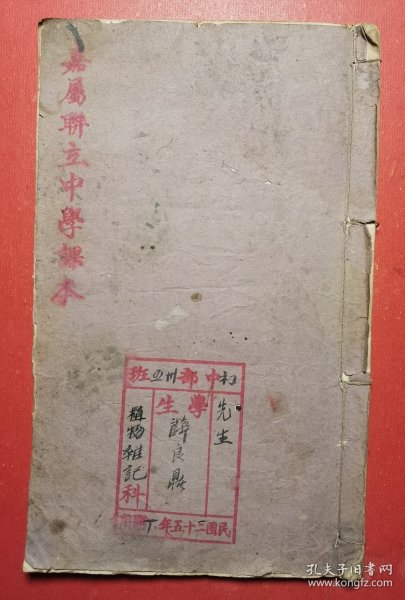 嘉屬聯立中學課本
初中部卅四班
先生
學生
薛良鼎
植物雜記科
民國三十五年
孔夫子旧书网
www.kongfz.com